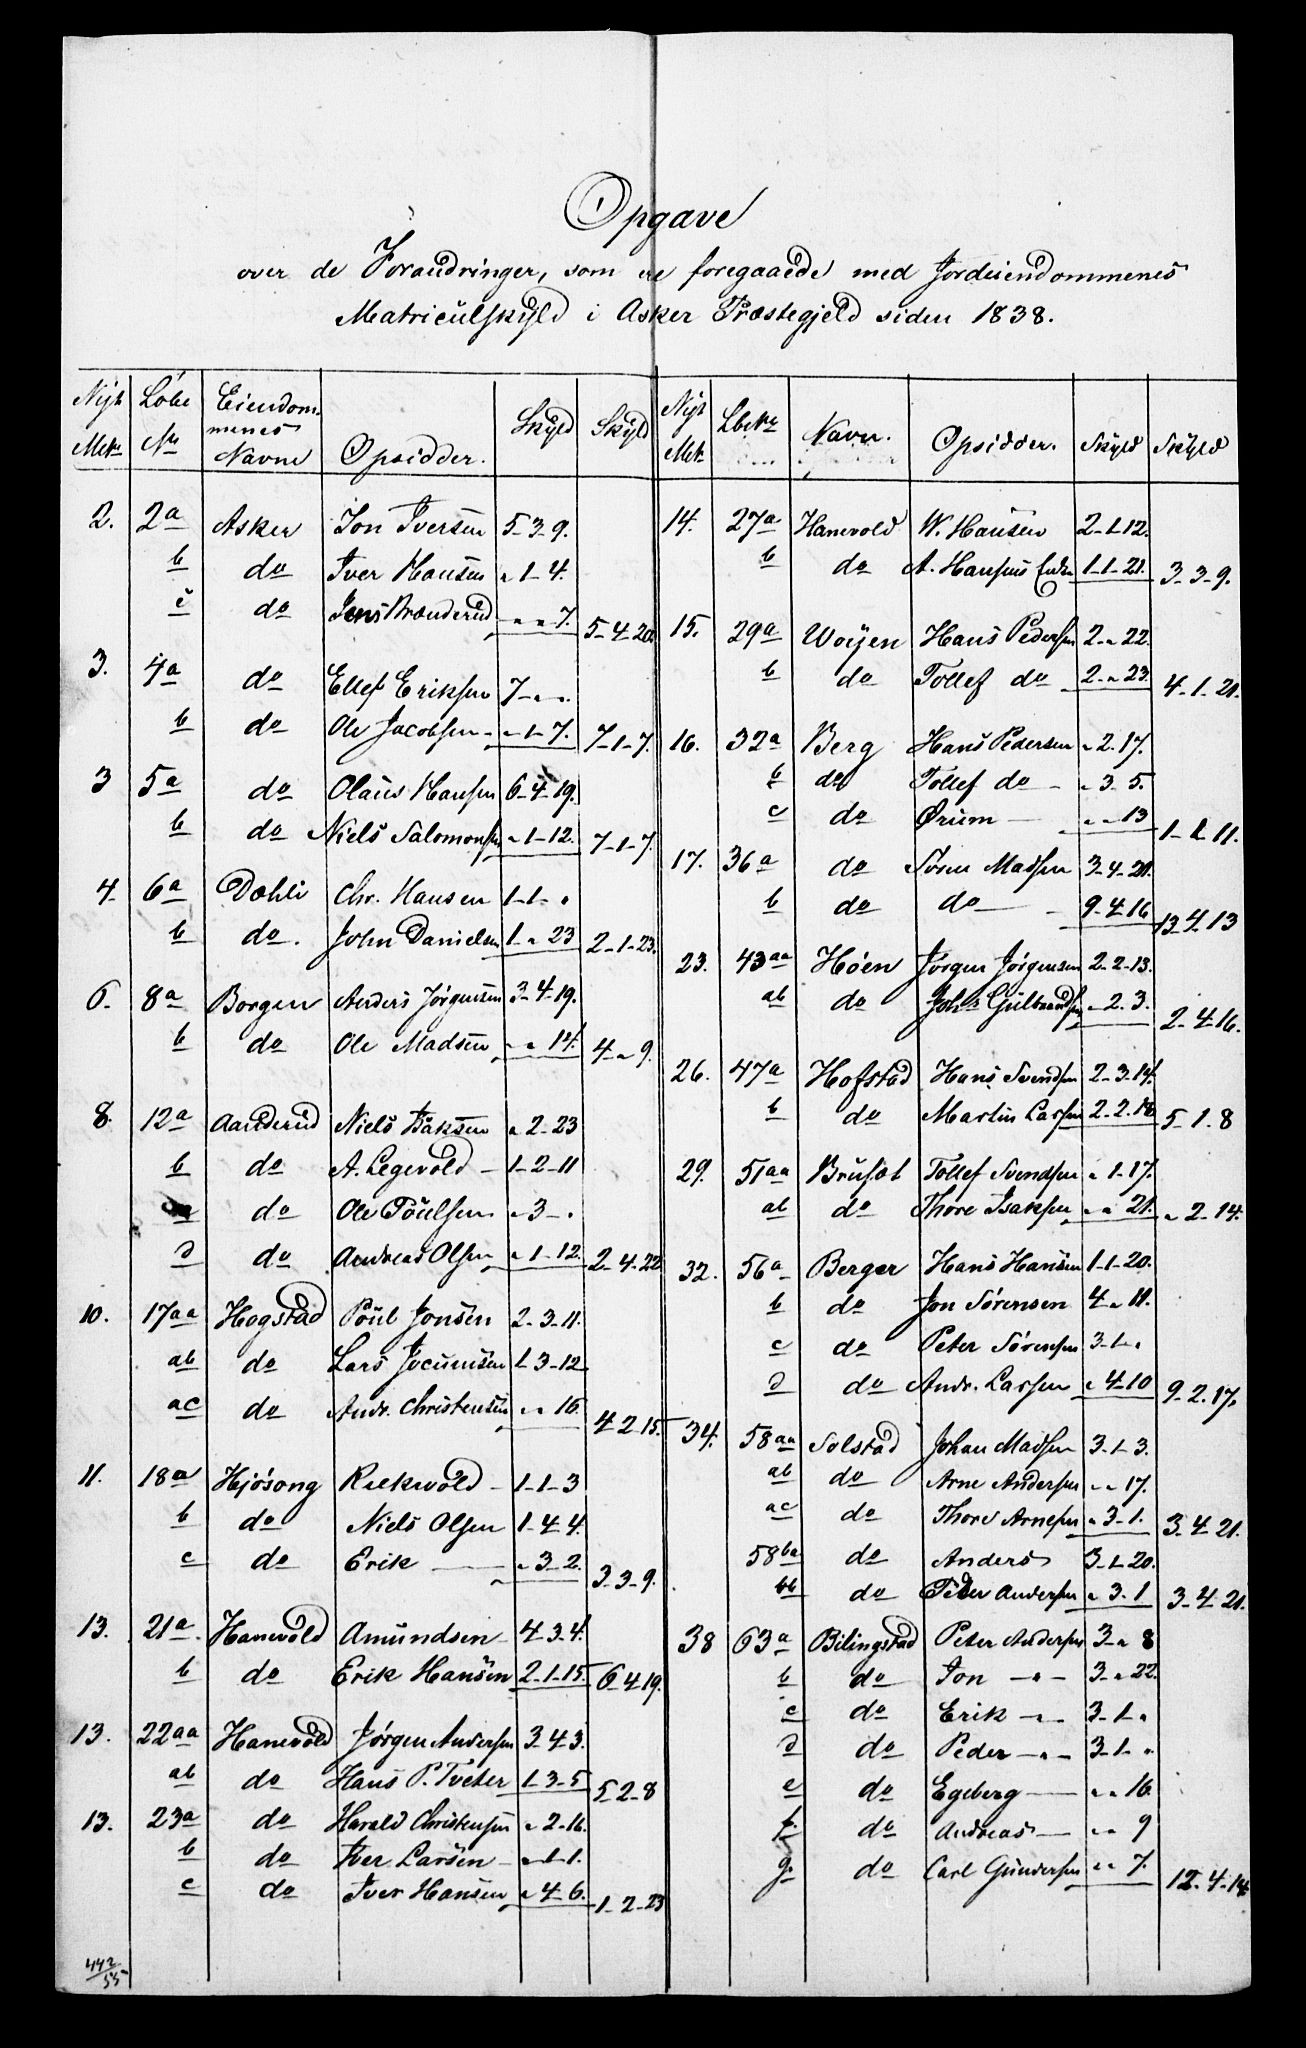 Opgave
over de Forandringer, som ere foregaaede med Jordeiendommenes
Matriculskyld i Asker Præstegjeld siden 1838.
Nyt Mtr. Løbe No Eiendommenes Navne Opsidder. Skyld Skyld
2. 2a Asker Jon Iversen 5-3-9.
b do Iver Hansen „-1-4.
c do Jens Brænderud „-„-7. 5-4-20.
3. 4a do Ellef Eriksen 7-„-„
b do Ole Jacobsen „-1-7. 7-1-7.
3 5a do Olaus Hansen 6-4-19.
b do Niels Salomonsen „-1-12. 7-1-7.
4. 6a Dæhli Chr. Hansen 1-1-„
b do. John Danielsen 1-„-23 2-1-23.
6. 8a Borgen Anders Jørgensen 3-4-19.
b do Ole Madsen „-„-14. 4-„-9.
8. 12a Aanderud Niels Isaksen „-2-23
b do A. Legevold 1-2-11
do Ole Poulsen „-3-„
d do Andreas Olsen „-1-12. 2-4-22
10. 17aa Hogstad Poul Jonsen 2-3-11.
ab do Lars Jocumsen 1-3-12
ac do Andr. Christensen „-„-16. 4-2-15.
11. 18a Hjøsong 1-1-3
b do Niels Olsen 1-4-4.
c do Erik „-3-2. 3-3-9.
13. 21a Hanevold Amundsen 4-3-4.
b do Erik Hansen 2-1-15. 6-4-19.
13. 22aa Hanevold Jørgen Andersen 3-4-3.
ab do Hans P. Tveter 1-3-5 5-2-8
13. 23a do Harald Christensen „-2-16.
b do Iver Larsen „-1-1.
c do Iver Hansen „-4-6. 1-2-23
442/55
Nyt Mtr Lbnr Navn. Opsidder. Skyld Skyld
14. 27a Hanevold W. Hansen 2-1-12.
b do A. Hansens Enke 1-1-21. 3-3-9.
15. 29a Woyen Hans Pedersen 2-„-22.
b do Tollef do 2-„-23. 4-1-21.
16. 32a Berg Hans Pedersen „-2-17.
b do Tollef do „-3-5.
c do Ørum „-„-13 1-1-11.
17. 36a do Søren Madsen 3-4-21.
b do do 9-4-16 13-4-13
23. 43aa Høen Jørgen Jørgensen 2-2-13.
ab do Johs Gulbrandsen „-2-3. 2-4-16.
26. 47a Hofstad Hans Svendsen 2-3-14.
b do Martin Larsen 2-2-18 5-1-8
29. 51aa Brusæt Tollef Svendsen „-1-17.
ab do Thore Isaksen „-„-21. „-2-14.
32. 56a Berger Hans Hansen 1-1-20.
b do Jon Sørensen 4-„-11.
c do Peter Sørensen 3-1-„
d do Andr. Larsen „-4-10 9-2-17.
34. 58aa Solstad Johan Madsen 3-1-3.
ab do Arne Andersen „-„-17.
ac do Thore Arnesen „-3-1. 3-4-21.
58ba do Anders 3-1-20.
bb do Peder Andersen „-3-1 3-4-21.
38 63a Bilingstad Peter Andersen 3-„-8
b do Jon -„- 3-„-22.
c do Erik -„- 3-1-„
d do Peder -„- 3-1-„
e do Egeberg „-„-16.
f do Andreas „-„-9
g. do Carl Gundersen „-„-7. 12-4-14